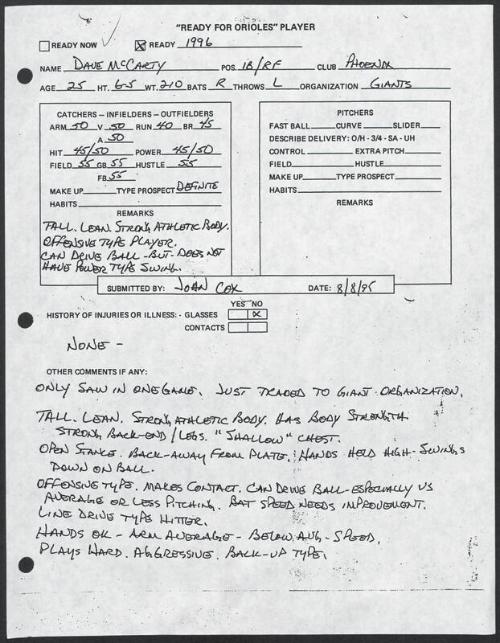 "READY FOR ORIOLES" PLAYER
READY NOW ✓ ☒ READY 1996
NAME DAVE McCARTY POS. 1B/RF CLUB PHOENIX
AGE 25 HT. 6-5 WT. 210 BATS R THROWS L ORGANIZATION GIANTS
CATCHERS – INFIELDERS - OUTFIELDERS
ARM 50 V. 50 RUN 40 BR. 45
A. 50
HIT 45/50 POWER 45/50
FIELD 55 GB 55 HUSTLE 55
FB 55
MAKE UP TYPE PROSPECT DEFINITE
HABITS
REMARKS
TALL. LEAN. STRONG ATHLETIC BODY.
OFFENSIVE TYPE PLAYER.
CAN DRIVE BALL - BUT - DOES NOT
HAVE POWER TYPE SWING.
PITCHERS
FAST BALL CURVE SLIDER
DESCRIBE DELIVERY: O/H - 3/4 - SA - UH
CONTROL EXTRA PITCH
FIELD HUSTLE
MAKE UP TYPE PROSPECT
HABITS
REMARKS
SUBMITTED BY: JOHN COX DATE: 8/8/95
YES NO
HISTORY OF INJURIES OR ILLNESS: - GLASSES ☒
CONTACTS
NONE -
OTHER COMMENTS IF ANY:
ONLY SAW IN ONE GAME. JUST TRADED TO GIANT ORGANIZATION.
TALL. LEAN. STRONG ATHLETIC BODY. HAS BODY STRENGTH
STRONG BACK-END / LEGS. "SHALLOW" CHEST.
OPEN STANCE. BACK-AWAY FROM PLATE. HANDS HELD HIGH - SWINGS
DOWN ON BALL.
OFFENSIVE TYPE. MAKES CONTACT. CAN DRIVE BALL - ESPECIALLY VS
AVERAGE OR LESS PITCHING. BAT SPEED NEEDS IMPROVEMENT.
LINE DRIVE TYPE HITTER.
HANDS OK - ARM AVERAGE - BELOW AVG - SPEED.
PLAYS HARD. AGGRESSIVE. BACK-UP TYPE.